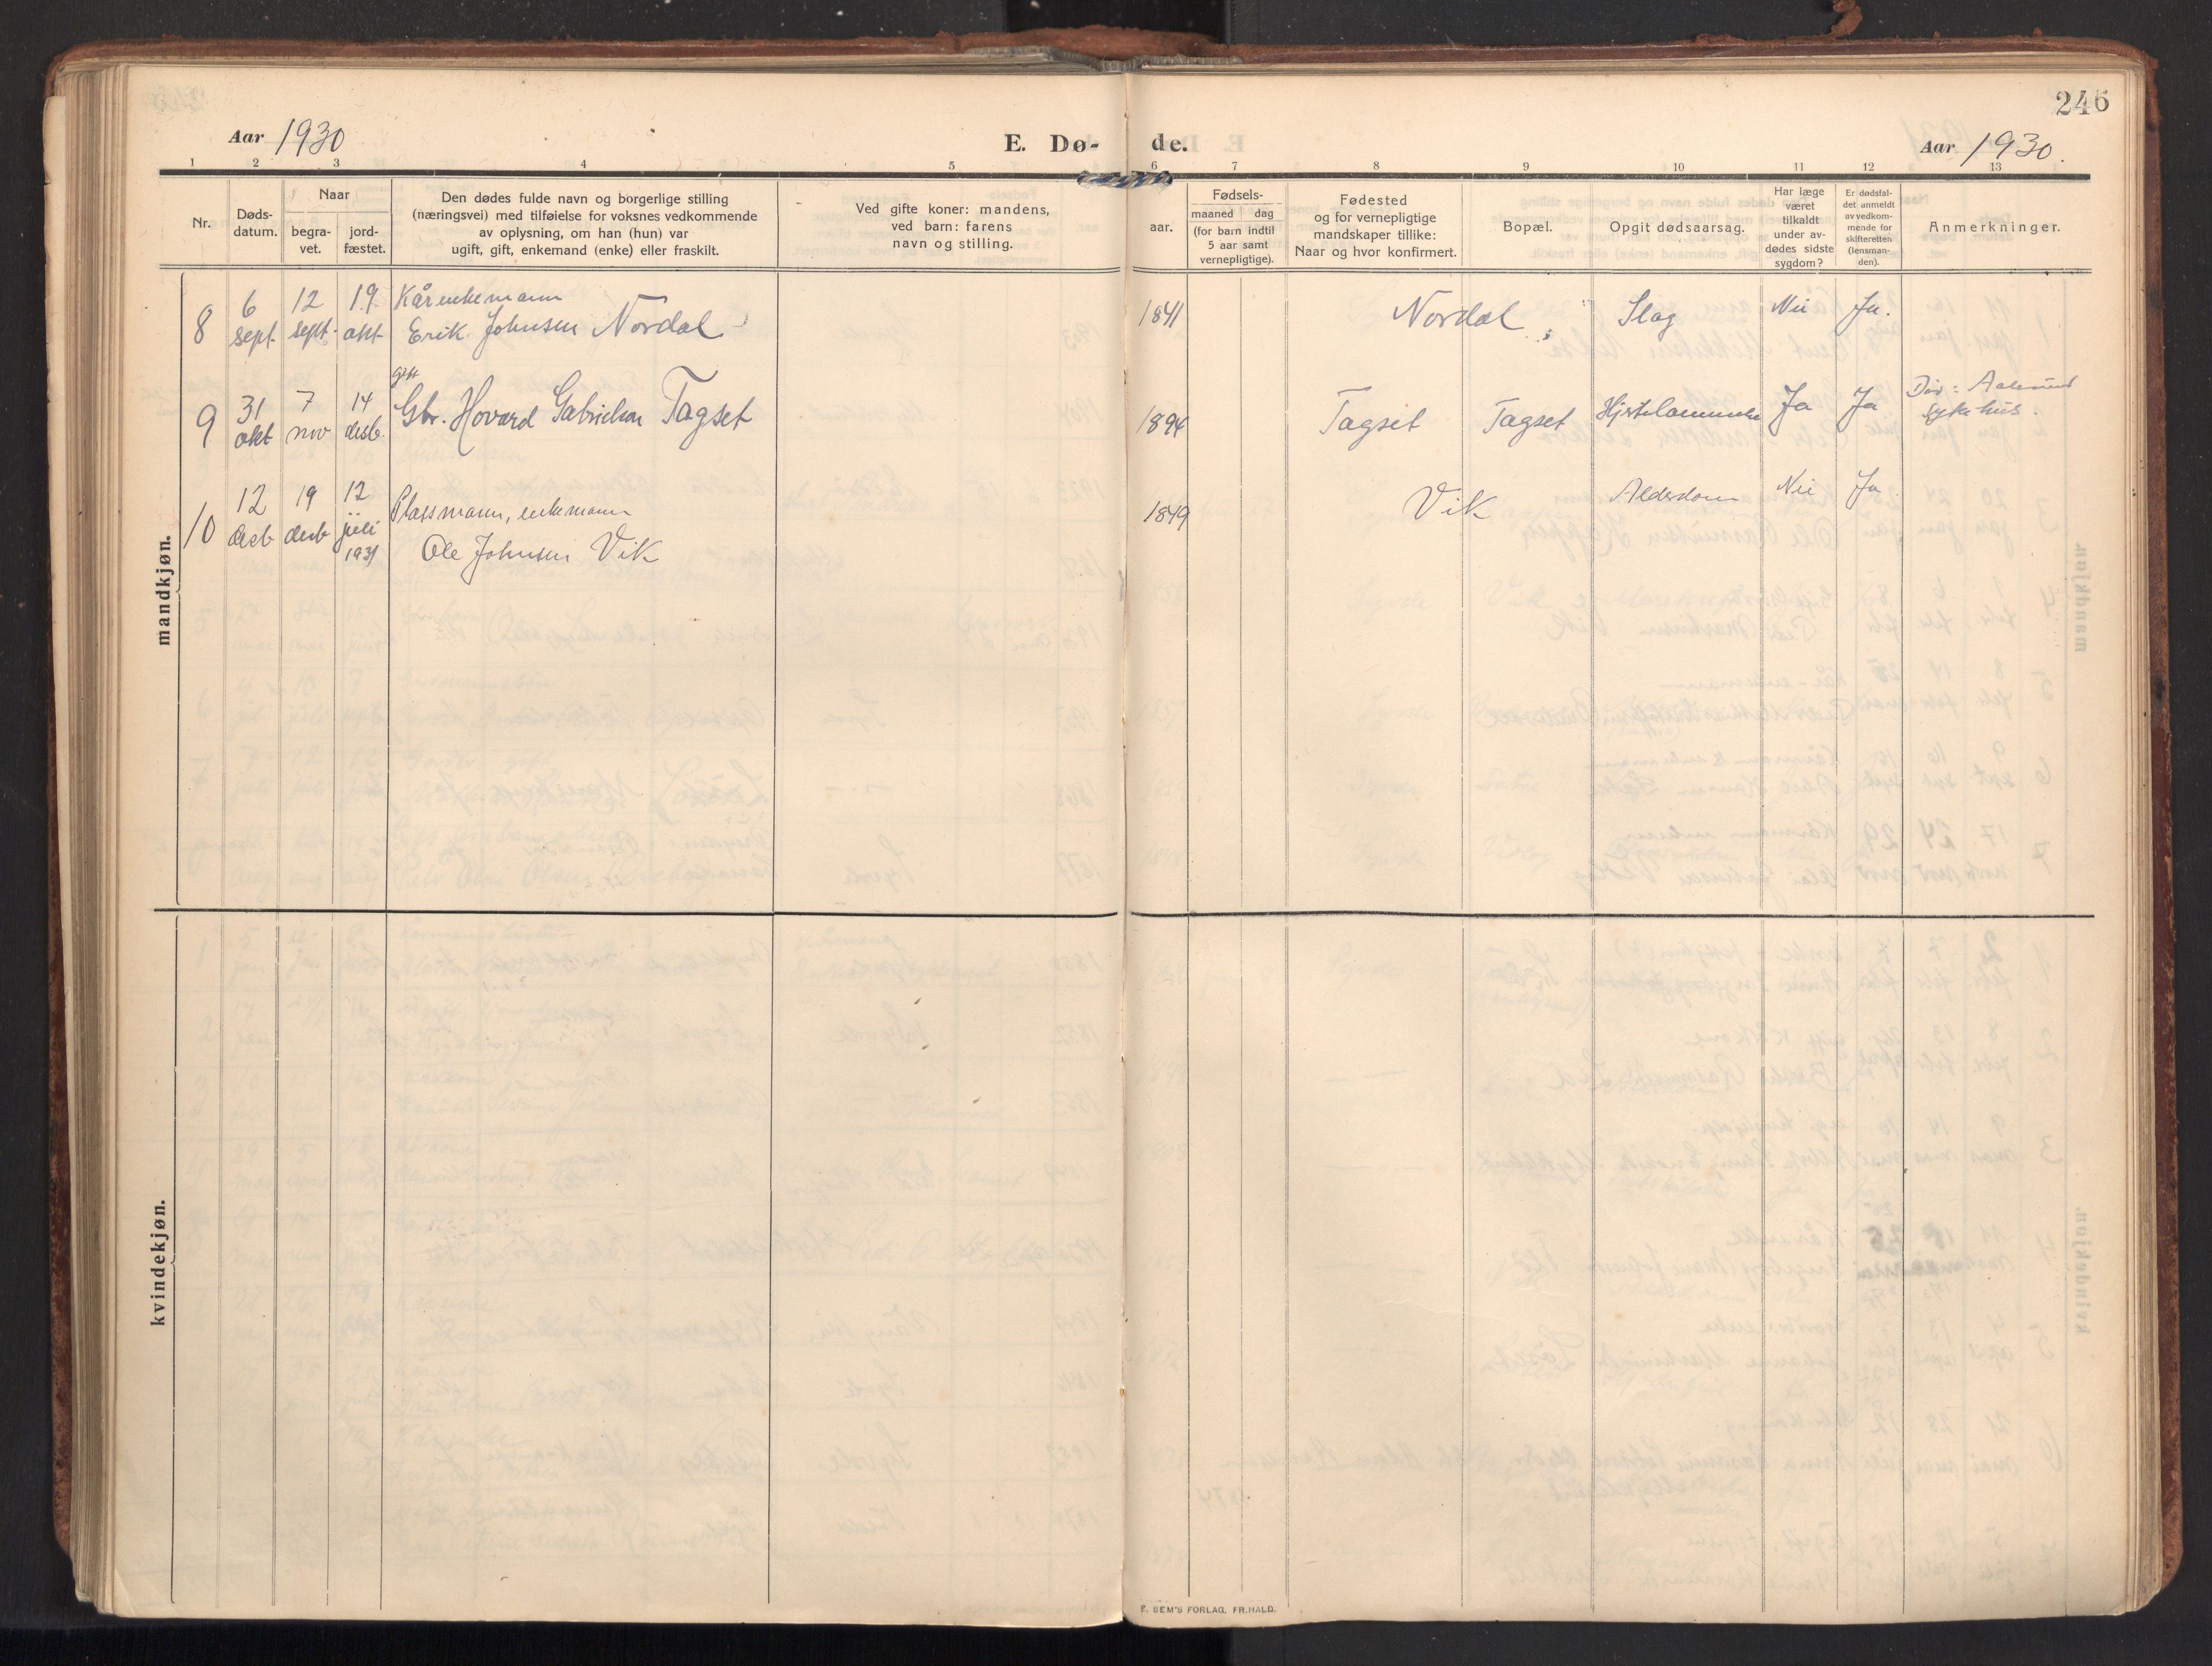 246
Aar 1930
E. Dø-
de.
Aar 1930.
1 2 3 4 5 6 7 8 9 10 11 12 13
Nr.
Døds-
datum.
Naar
begra-
vet.
jord-
fæstet.
Den dødes fulde navn og borgerlige stilling
(næringsvei) med tilføielse for voksnes vedkommende
av oplysning, om han (hun) var
ugift, gift, enkemand (enke) eller fraskilt.
Ved gifte koner: mandens,
ved barn: farens
navn og stilling.
aar.
Fødsels-
maaned dag
(for barn indtil
5 aar samt
vernepligtige).
Fødested
og for vernepligtige
mandskaper tillike:
Naar og hvor konfirmert.
Bopæl.
Opgit dødsaarsag.
Har læge
været
tilkaldt
under av-
dødes sidste
sygdom?
Er dødsfal-
det anmeldt
av vedkom-
mende for
skifteretten
(lensman-
den).
Anmerkninger.
mandkjøn.
8
6
sept.
12
sept.
19.
okt
Kårenkemann
Erik Johnsen Nordal
1841
Nordal
Slag
Nei
Ja.
9
31
okt
7
nov
14
desb.
gift
Gbr. Hovard Gabrielsen Tagset
1894
Tagset
Tagset
Hjertelammelse
Ja
Ja
Død: Aalesund
sykehus.
10
12
desb
19
desb
12
juli
1931
Plassmann, enkemann
Ole Johnsen Vik
1849
Vik
Alderdom
Nei
Ja
kvindekjøn.
E. SEM'S FORLAG, FR.HALD.